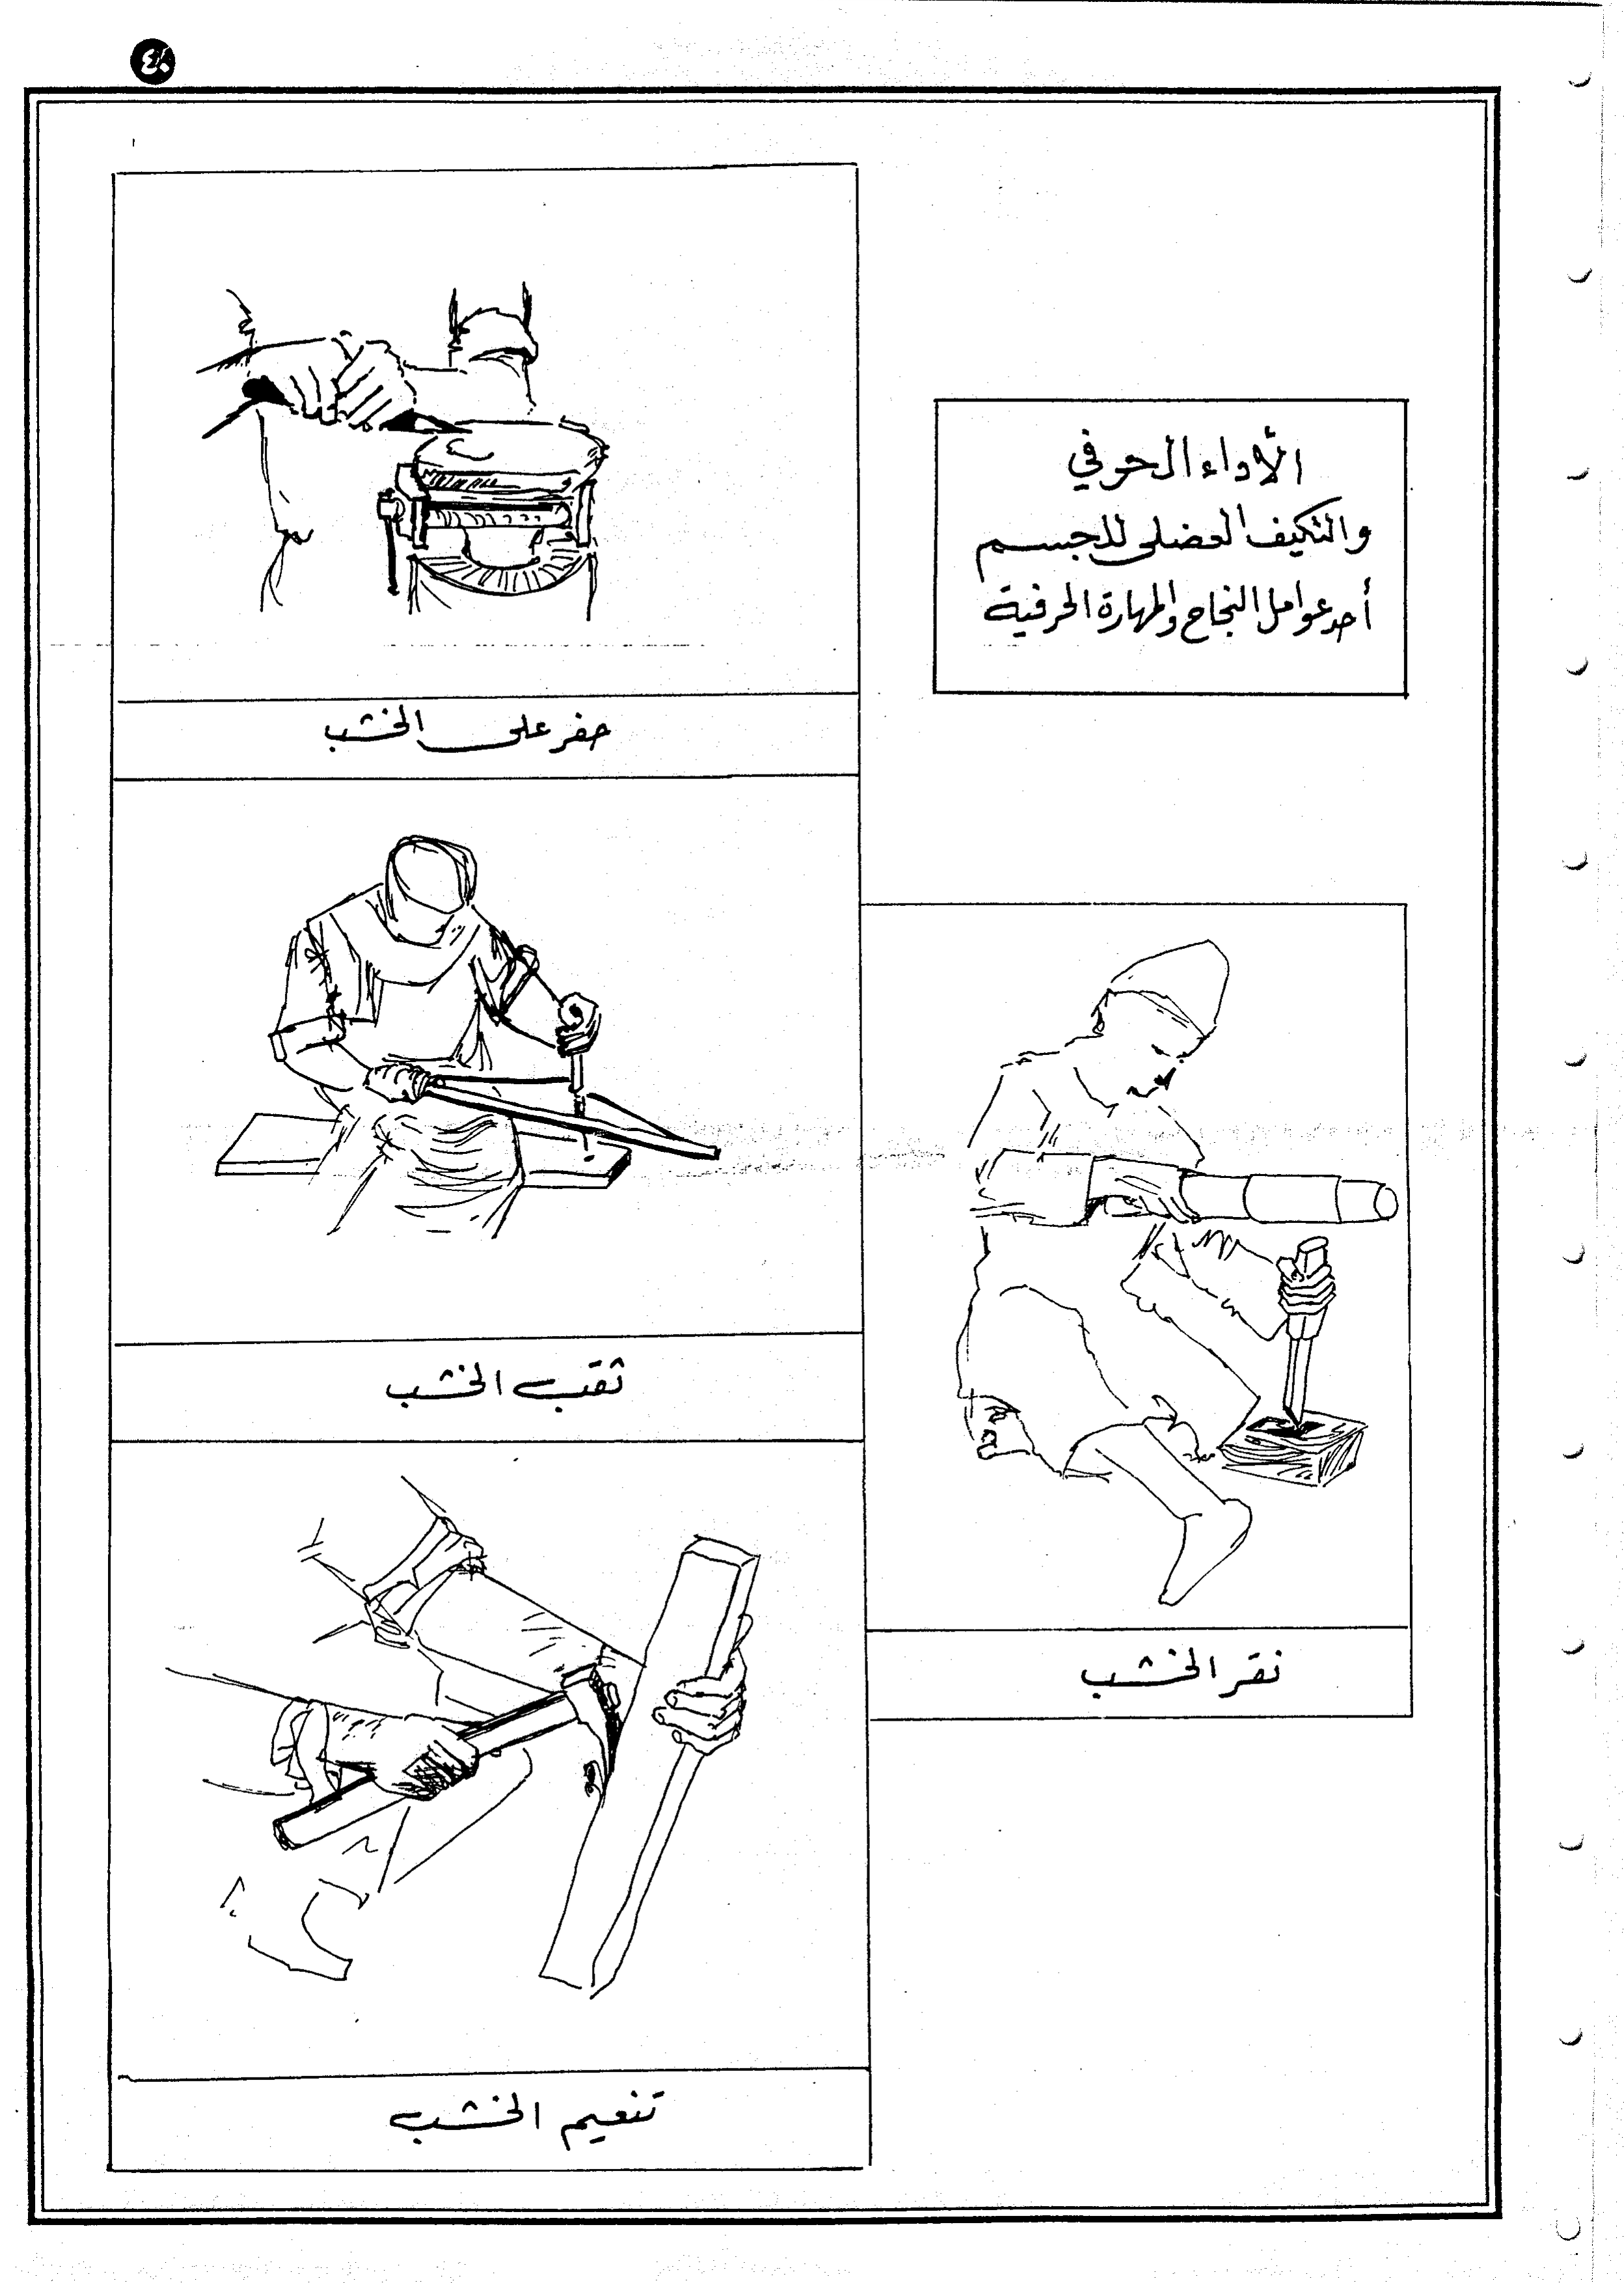 ٤٠
الأداء الحرفي
والتكيف العضلى للجسم
أحد عوامل النجاح والمهارة الحرفية
حفر على الخشب
ثقب الخشب
نقر الخشب
تنعيم الخشب